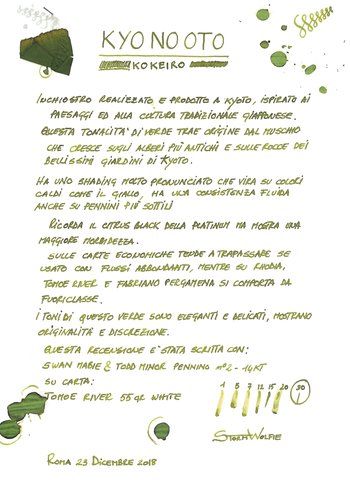 KYO NO OTO
KOKEIRO
INCHIOSTRO REALIZZATO E PRODOTTO A KYOTO, ISPIRATO AI
PAESAGGI ED ALLA CULTURA TRADIZIONALE GIAPPONESE.
QUESTA TONALITA' DI VERDE TRAE ORIGINE DAL MUSCHIO
CHE CRESCE SUGLI ALBERI PIU' ANTICHI E SULLE ROCCE DEI
BELLISSIMI GIARDINI DI KYOTO.
HA UNO SHADING MOLTO PRONUNCIATO CHE VIRA SU COLORI
CALDI COME IL GIALLO, HA UNA CONSISTENZA FLUIDA
ANCHE SU PENNINI PIU' SOTTILI
RICORDA IL CITRUS BLACK DELLA PLATINUM MA MOSTRA UNA
MAGGIORE MORBIDEZZA.
SULLE CARTE ECONOMICHE TENDE A TRAPASSARE SE
USATO CON FLUSSI ABBONDANTI, MENTRE SU RHODIA,
TOMOE RIVER E FABRIANO PERGAMENA SI COMPORTA DA
FUORICLASSE.
I TONI DI QUESTO VERDE SONO ELEGANTI E DELICATI, MOSTRANO
ORIGINALITA' E DISCREZIONE.
QUESTA RECENSIONE E' STATA SCRITTA CON:
SWAN MABIE & TODD MINOR PENNINO Nº2 - 14KT
SU CARTA:
TOMOE RIVER 55 GR WHITE
1 5 7 12 15 20 30
STORMWOLFIE
ROMA 23 DICEMBRE 2018